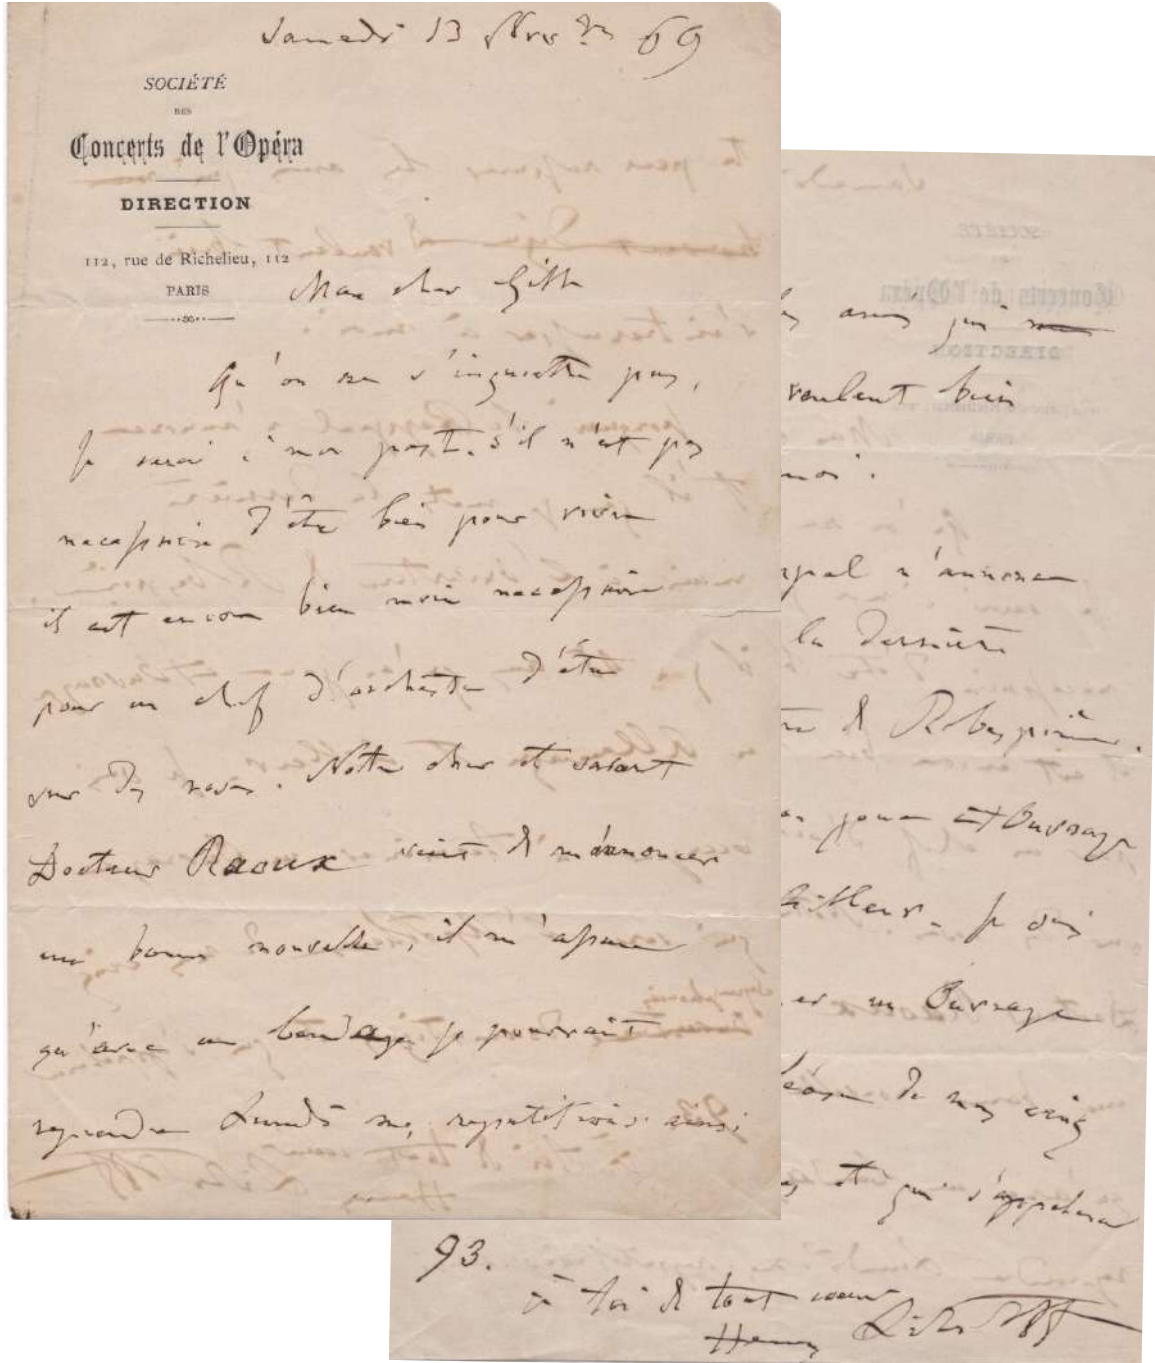 Samedi 13 9bre 69
SOCIÉTÉ
DES
Concerts de l'Opéra
DIRECTION
112, rue de Richelieu, 112
PARIS
Mon cher Gille
Qu'on ne s'inquiette pas,
je serai à mon poste. s'il n'est pas
necessaire d'être bien pour vivre
il est encore bien moin necessaire
pour un chef d'orchestre d'être
sur des roses. Notre cher et savant
Docteur Raoux vient de m'annoncer
une bonne nouvelle, il m'assure
qu'avec un bandage je pourrait
reprendre Lundi mes repetitions ainsi
amis qui
veulent bien
moi.
n'annonce
la dernière
de Robespierre.
joue cet Ouvrage
ailleurs. Je suis
un Ouvrage
de nos cinq
et qui s'appelera
93.
à toi de tout cœur
Henry Litolff